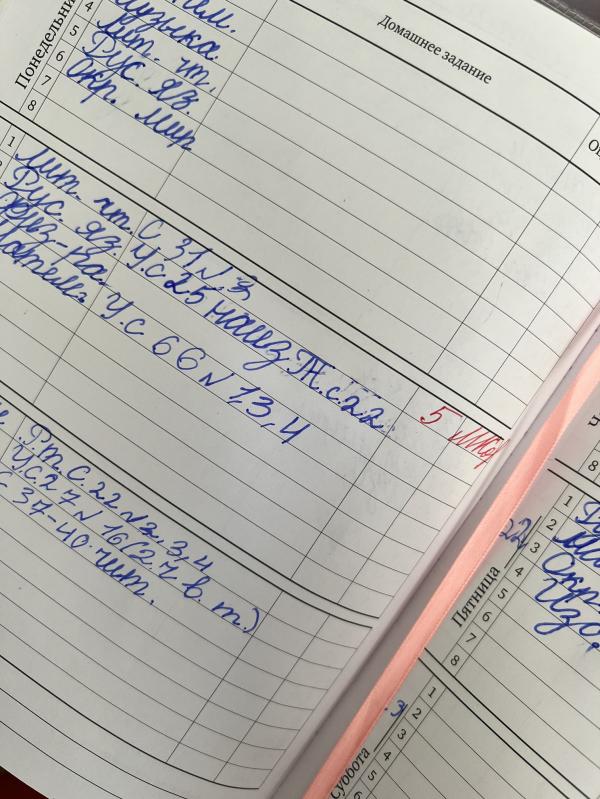 Домашнее задание
Понедельни
4
5
6
7
8
Музыка.
Лит. чт.
Рус. яз.
Окр. мир
1
Лит. чт. С 31 N 3
Рус. яз. У.с 25 наиз Т. с. 22.
Физ-ра.
Матем. У. с 66 N 1,3,4
5
Р.т. с. 22 N 2, 3, 4
У.с 27 N 16 (2 ч в. т.)
С 37-40 чит.
8
22
Пятница
1
2
3
4
5
6
7
8
Окр.
Изо.
.3
Суббота
1
2
3
4
5
6